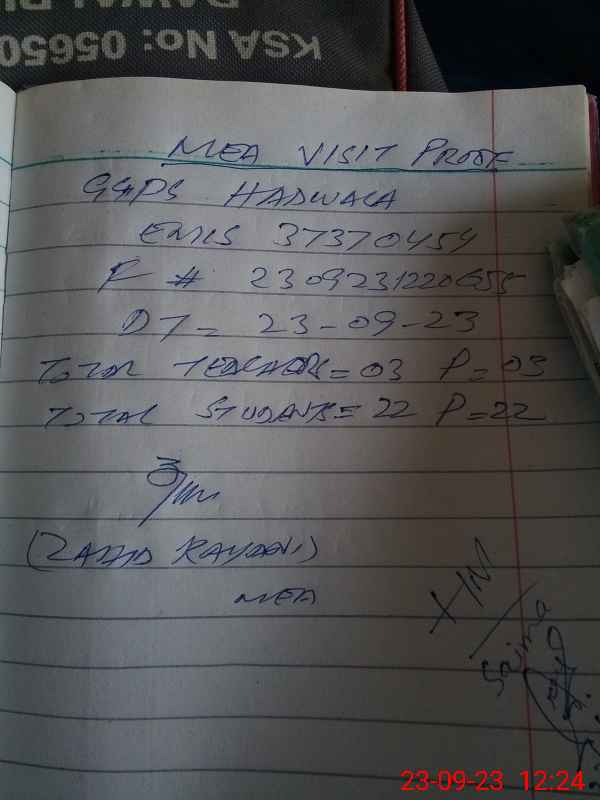 RAWALPI
KSA No: 05650
MEA VISIT PROOF
GGPS HADWALA
EMIS 37370454
DT = 23-09-23
TOTAL TEACHERS = 03 P = 03
TOTAL STUDENTS = 22 P = 22
(ZAHID
MEA
Saima
23-09-23 12:24